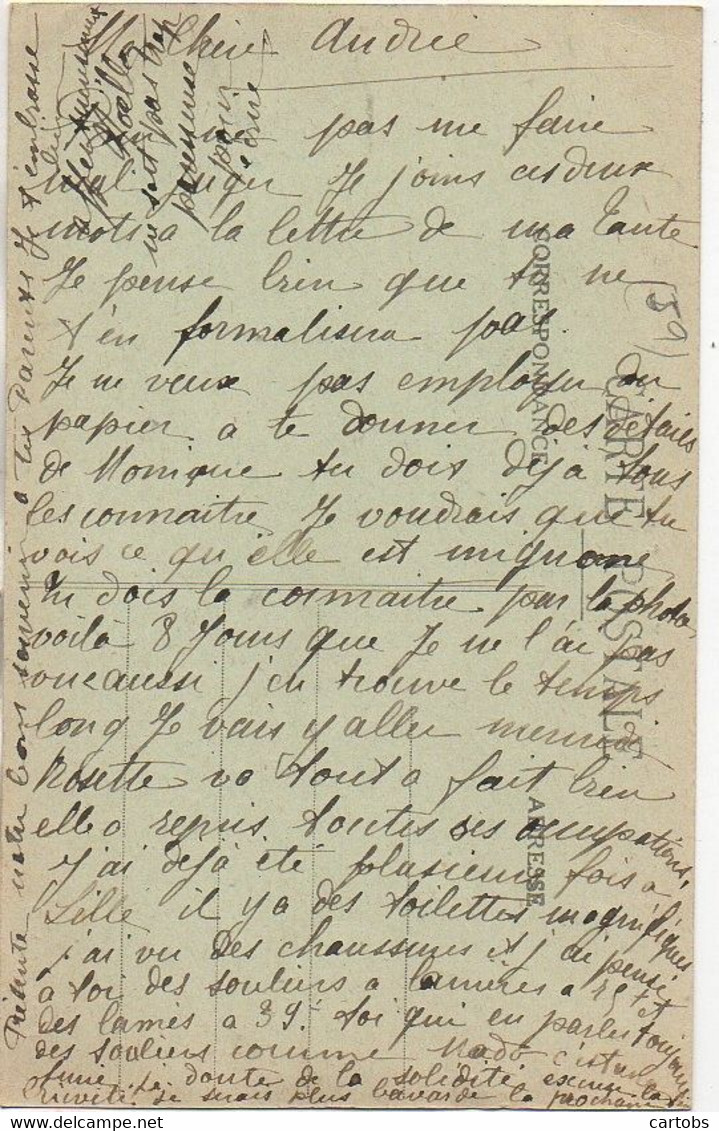 Ma Chère Andrée
pas me faire
mal juger Je joins ces deux
mots a la lettre de ma Tante
Je pense bien que tu ne
t'en formalisera pas.
Je ne veux pas employer du
papier a te donner des détails
de Monique tu dois déjà tous
les connaitre Je voudrais que tu
vois ce qu'elle est mignone
tu dois la connaitre par la photo
voilà 8 Jours que Je ne l'ai pas
vue aussi j'en trouve le temps
long Je vais y aller mercredi
Rosette va tout a fait bien
elle a repris toutes ses occupations,
j'ai déjà été plusieurs fois a
Lille il y a des toilettes magnifiques
j'ai vu des chaussures et j'ai pensé
a toi des souliers a lanières a 49f et
des lamés a 39f toi qui en parles toujours
des souliers comme Mado c'est
Je doute de la solidité excuse la
je serais plus bavarde la prochaine
Présente notre bons souvenir a tes Parents Je t'embrasse
bien
ne soit pas trop
paresseuse
pour
écrire
(59)
CARTE POSTALE
CORRESPONDANCE
ADRESSE